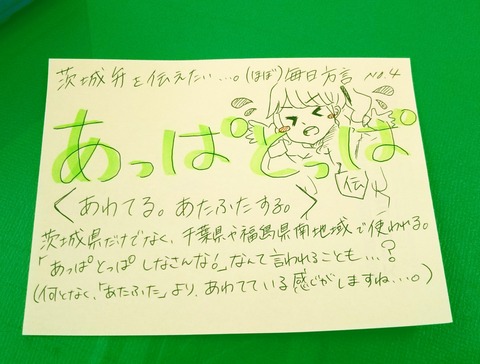 茨城弁を伝えたい…。(ほぼ)毎日方言 No.4
あっぱとっぱ
伝
<あわてる。あたふたする。>
茨城県だけでなく、千葉県や福島県南地域で使われる。
「あっぱとっぱしなさんな!」なんて言われることも…?
(何となく、「あたふた」より、あわてている感じがしますね…。)